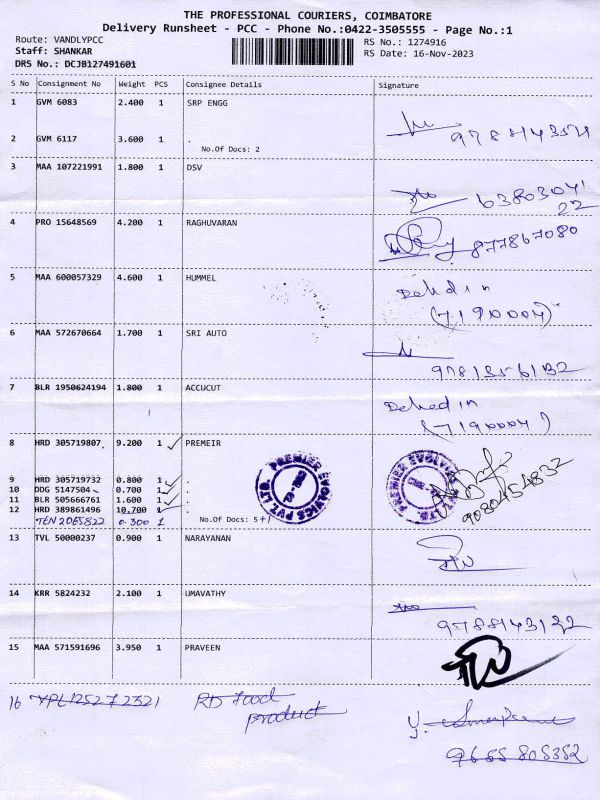 THE PROFESSIONAL COURIERS, COIMBATORE
Delivery Runsheet - PCC - Phone No.:0422-3505555 - Page No.:1
Route: VANDLYPCC RS No.: 1274916
Staff: SHANKAR RS Date: 16-Nov-2023
DRS No.: DCJB127491601
S No Consignment No Weight PCS Consignee Details Signature
1 GVM 6083 2.400 1 SRP ENGG
2 GVM 6117 3.600 1 .
No.Of Docs: 2
3 MAA 107221991 1.800 1 DSV
63803041
22
4 PRO 15648569 4.200 1 RAGHUVARAN
877867080
5 MAA 600057329 4.600 1 HUMMEL
(7190004)
6 MAA 572670664 1.700 1 SRI AUTO
7 BLR 1950624194 1.800 1 ACCUCUT
(7190004)
8 HRD 305719807 9.200 1 PREMEIR
PREMIER EVOLVICS PVT LTD.
9 HRD 305719732 0.800 1 .
10 DDG 5147504 0.700 1 .
11 BLR 505666761 1.600 1 .
12 HRD 389861496 10.700 1 .
9080454832
TEN 2065822 0.300 1 No.Of Docs: 5+1
13 TVL 50000237 0.900 1 NARAYANAN
14 KRR 5824232 2.100 1 UMAVATHY
9788143132
15 MAA 571591696 3.950 1 PRAVEEN
16 RD Food
product
9655 805352